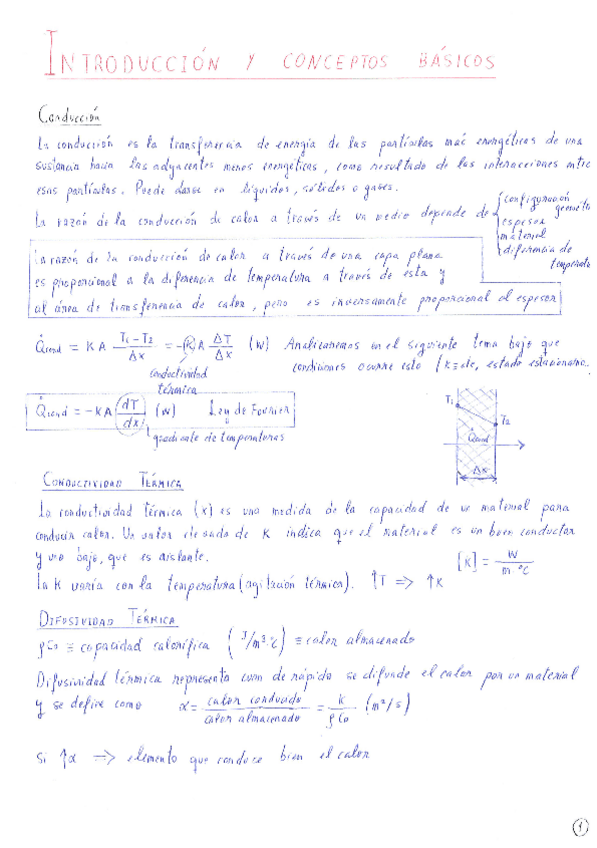 INTRODUCCIÓN Y CONCEPTOS BÁSICOS
Conducción
La conducción es la transferencia de energía de las partículas más energéticas de una
sustancia hacia las adyacentes menos energéticas, como resultado de las interacciones entre
esas partículas. Puede darse en líquidos, sólidos o gases.
La razón de la conducción de calor a través de un medio depende de { configuración geométri
espesor
material
diferencia de
temperatu
La razón de la conducción de calor a través de una capa plana
es proporcional a la diferencia de temperatura a través de esta y
al área de transferencia de calor, pero es inversamente proporcional al espesor
Q̇cond = KA (T1-T2)/Δx = -KA ΔT/Δx (W) Analizaremos en el siguiente tema bajo que
condiciones ocurre esto (k=cte, estado estacionario.
conductividad
térmica
Q̇cond = -KA (dT/dx) (W) Ley de Fourier
gradiente de temperaturas
T1
T2
Q̇cond
Δx
CONDUCTIVIDAD TÉRMICA
La conductividad térmica (K) es una medida de la capacidad de un material para
conducir calor. Un valor elevado de K indica que el material es un buen conductor
y uno bajo, que es aislante.
[K] = W/m·°C
La K varía con la temperatura (agitación térmica). ↑T => ↑K
DIFUSIVIDAD TÉRMICA
ρCp ≡ capacidad calorífica (J/m³·°C) ≡ calor almacenado
Difusividad térmica representa cuan de rápido se difunde el calor por un material
y se define como α = calor conducido/calor almacenado = k/ρCp (m²/s)
Si ↑α => elemento que conduce bien el calor
1